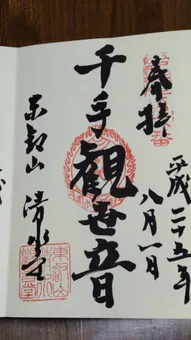 奉拝
平成二十五年
八月一日
千手観世音
東叡山 清水寺